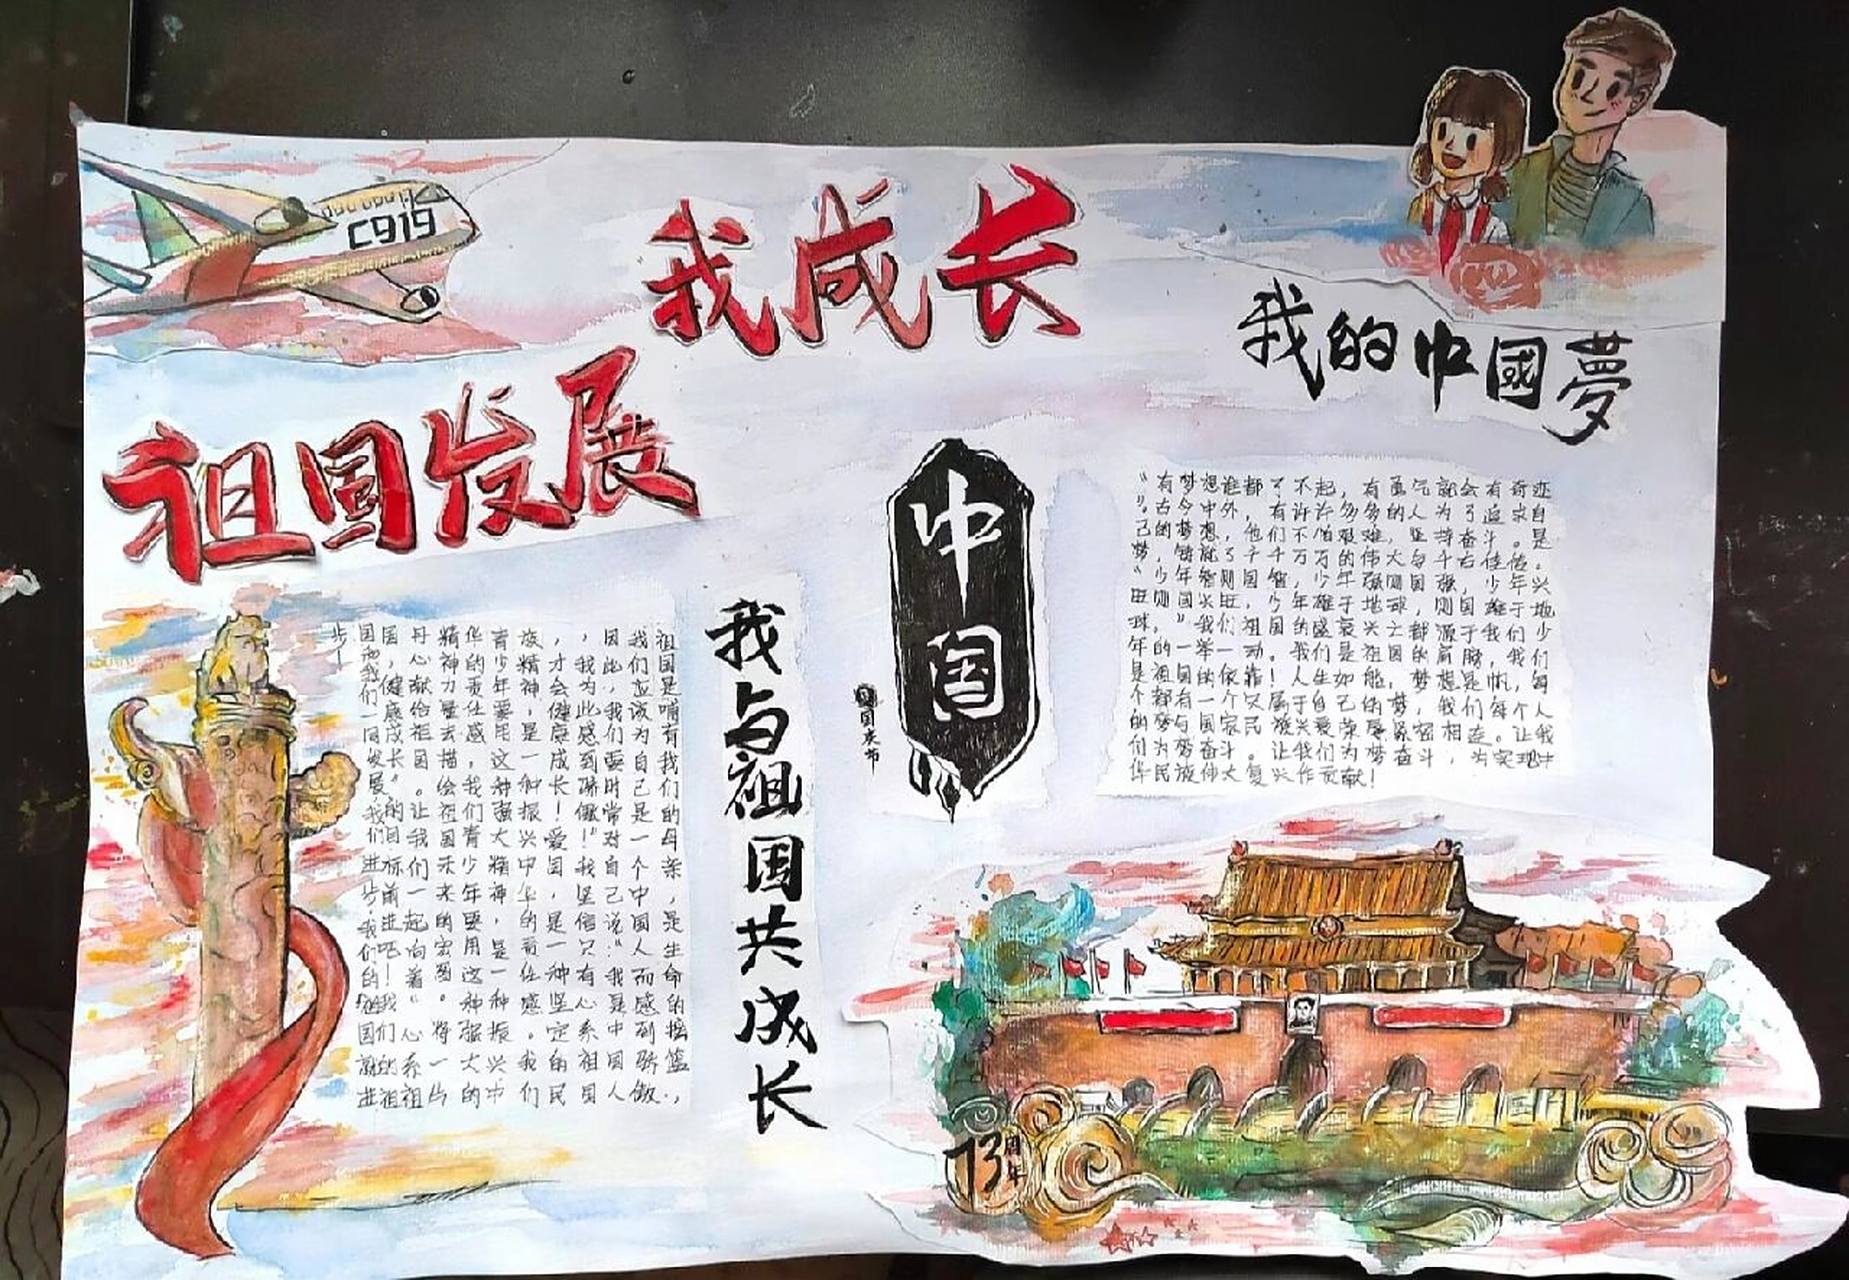 C919
我成长
祖国发展
我的中國夢
中国
國国发布
我与祖国共成长
祖国是哺育我们的母亲，是生命的摇篮，
我们应该为自己是一个中国人而感到骄傲.
因此，我们要时常对自己说：“我是中国人
，我为此感到骄傲！”我坚信只有心系祖国
，才会健康成长！爱国，是一种坚定的民
族精神，是一种振兴中华的责任感。我们
青少年要用这种强大精神，是一种振兴中
华的责任感，我们青少年要用这种强大的
精神力量去描绘祖国未来的宏图。将一片
丹心献给祖国。让我们一起向着“心系祖
国，健康成长”的目标前进吧！我们的祖
国和我们一同发展，我们进步，我们的祖国进
步！
“有梦想谁都了不起，有勇气就会有奇迹
”。古今中外，有许许多多的人为了追求自
己的梦想，他们不怕艰难，坚持奋斗。是
梦，铸就了千千万万的伟大与千古佳传。
“少年智则国智，少年强则国强，少年兴
旺则国兴旺，少年雄于地球，则国雄于地
球，”我们祖国的盛衰兴亡都源于我们少
年的一举一动。我们是祖国的肩膀，我们
是祖国的依靠！人生如船，梦想是帆，每
个都有一个只属于自己的梦，我们每个人
的梦与国家民族兴衰荣辱紧密相连。让我
们为梦奋斗。让我们为梦奋斗，为实现中
华民族伟大复兴作贡献！
73周年